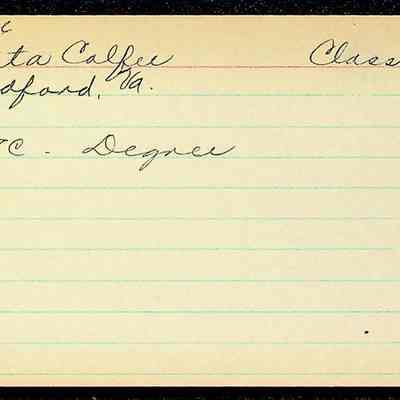 ta Calfee Class
dford, Va.
C. Degree